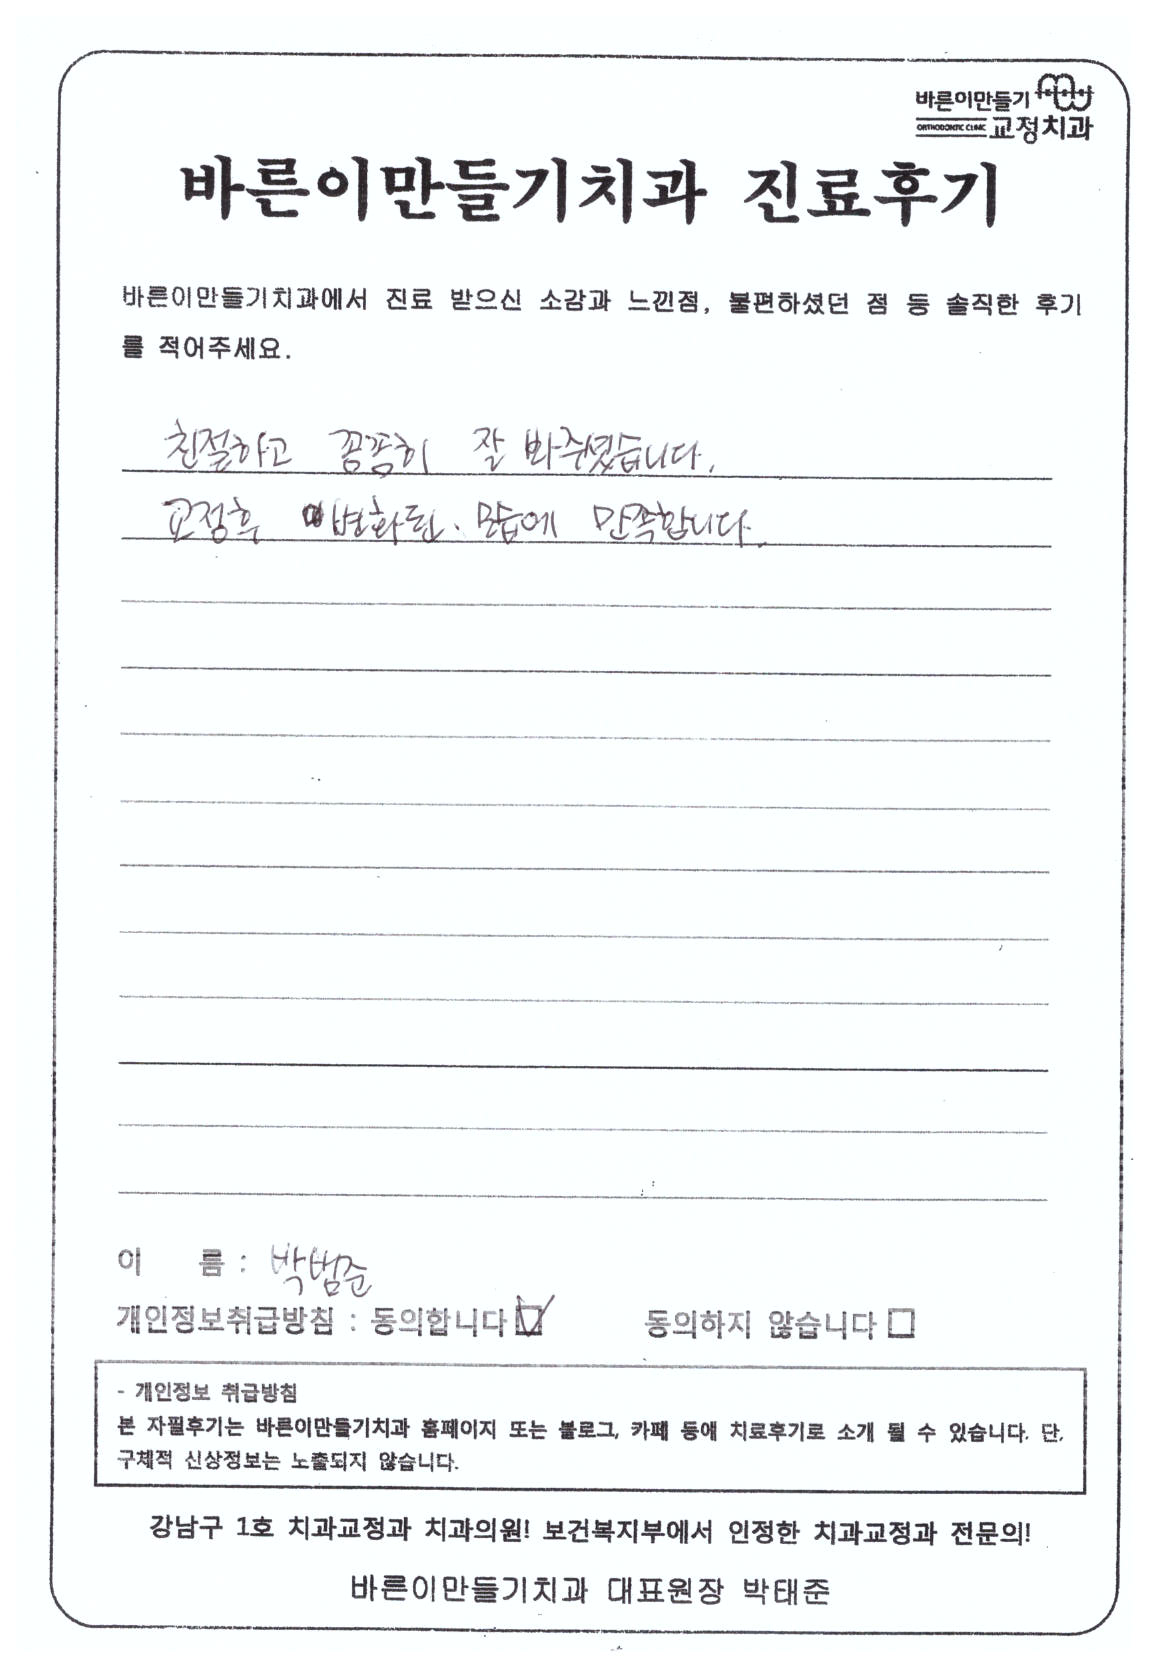 바른이만들기
ORTHODONTIC CLINIC 교정치과
바른이만들기치과 진료후기
바른이만들기치과에서 진료 받으신 소감과 느낀점, 불편하셨던 점 등 솔직한 후기
를 적어주세요.
친절하고 꼼꼼히 잘 봐주셨습니다.
교정후 변화된 모습에 만족합니다.
이 름 : 박범준
개인정보취급방침 : 동의합니다 동의하지 않습니다
- 개인정보 취급방침
본 자필후기는 바른이만들기치과 홈페이지 또는 블로그, 카페 등에 치료후기로 소개 될 수 있습니다. 단,
구체적 신상정보는 노출되지 않습니다.
강남구 1호 치과교정과 치과의원! 보건복지부에서 인정한 치과교정과 전문의!
바른이만들기치과 대표원장 박태준